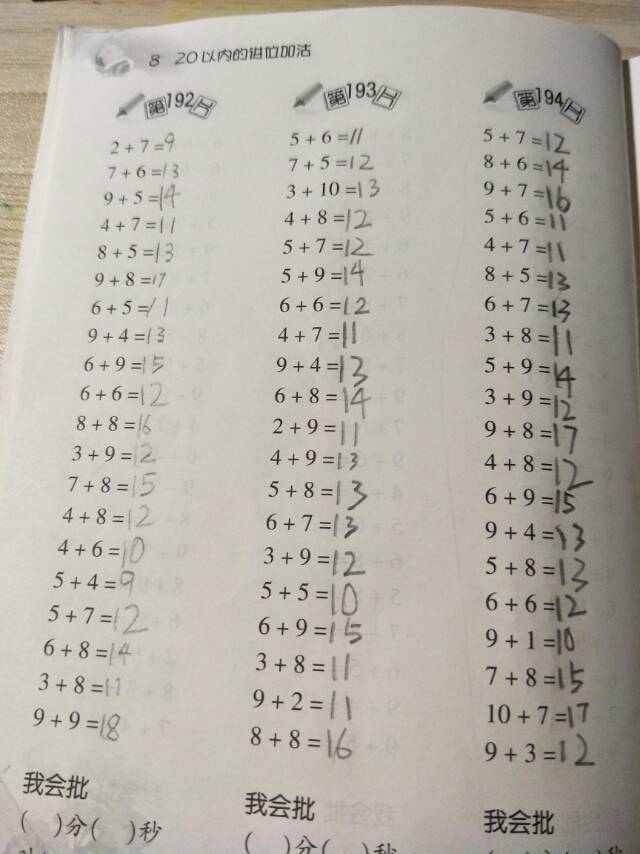 8 20以内的进位加法
第192日
2+7=9
7+6=13
9+5=14
4+7=11
8+5=13
9+8=17
6+5=11
9+4=13
6+9=15
6+6=12
8+8=16
3+9=12
7+8=15
4+8=12
4+6=10
5+4=9
5+7=12
6+8=14
3+8=11
9+9=18
我会批
( )分( )秒
第193日
5+6=11
7+5=12
3+10=13
4+8=12
5+7=12
5+9=14
6+6=12
4+7=11
9+4=13
6+8=14
2+9=11
4+9=13
5+8=13
6+7=13
3+9=12
5+5=10
6+9=15
3+8=11
9+2=11
8+8=16
我会批
( )分( )秒
第194日
5+7=12
8+6=14
9+7=16
5+6=11
4+7=11
8+5=13
6+7=13
3+8=11
5+9=14
3+9=12
9+8=17
4+8=12
6+9=15
9+4=13
5+8=13
6+6=12
9+1=10
7+8=15
10+7=17
9+3=12
我会批